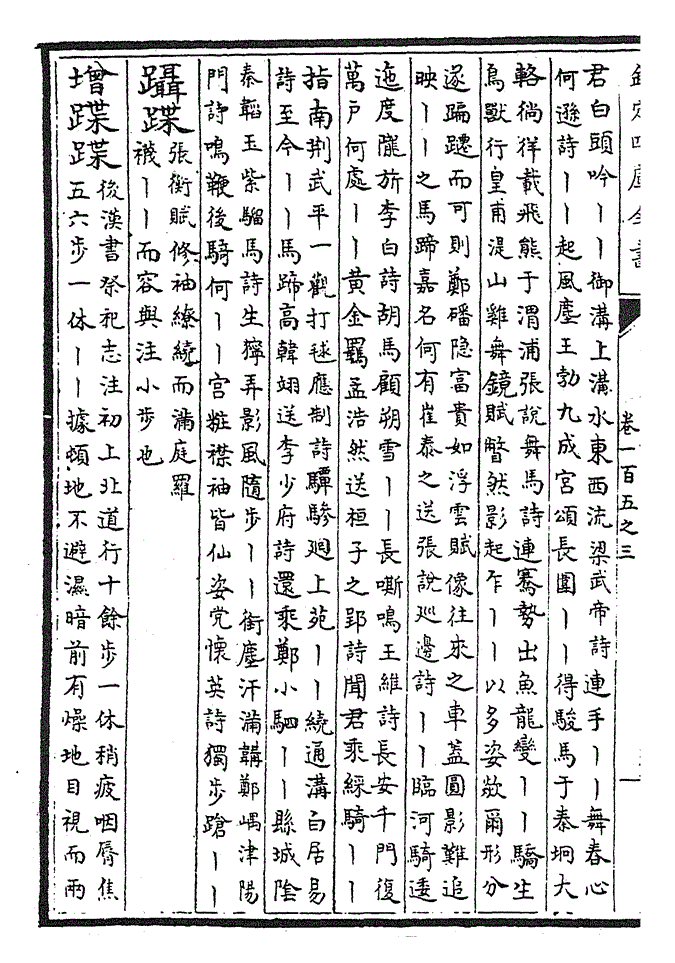 欽定四庫全書
卷一百五之三
一
君白頭吟丨丨御溝上溝水東西流梁武帝詩連手丨丨舞春心
何遜詩丨丨起風塵王勃九成宮頌長圍丨丨得駿馬于泰坰大
輅徜徉載飛熊于渭浦張說舞馬詩連騫勢出魚龍變丨丨驕生
鳥獸行皇甫湜山雞舞鏡賦瞥然影起乍丨丨以多姿欻爾形分
遂蹁躚而可則鄭磻隐富貴如浮雲賦像往來之車蓋圓影難追
映丨丨之馬蹄嘉名何有崔泰之送張說巡邊詩丨丨臨河騎逶
迤度隴旂李白詩胡馬顧朔雪丨丨長嘶鳴王維詩長安千門復
萬戸何處丨丨黄金羈孟浩然送桓子之郢詩聞君乘綵騎丨丨
指南荆武平一觀打毬應制詩驔驂廻上苑丨丨繞通溝白居易
詩至今丨丨馬蹄高韓翃送李少府詩還乘鄭小駟丨丨縣城陰
秦韜玉紫騮馬詩生獰弄影風隨步丨丨衝塵汗滿韝鄭嵎津陽
門詩鳴鞭後騎何丨丨宮粧襟袖皆仙姿党懷英詩獨步蹌丨丨
躡蹀
張衡賦修袖繚繞而滿庭羅
襪丨丨而容與注小步也
增蹀蹀
後漢書祭祀志注初上北道行十餘步一休稍疲咽脣焦
五六步一休丨丨據頓地不避濕暗前有燥地目視而兩